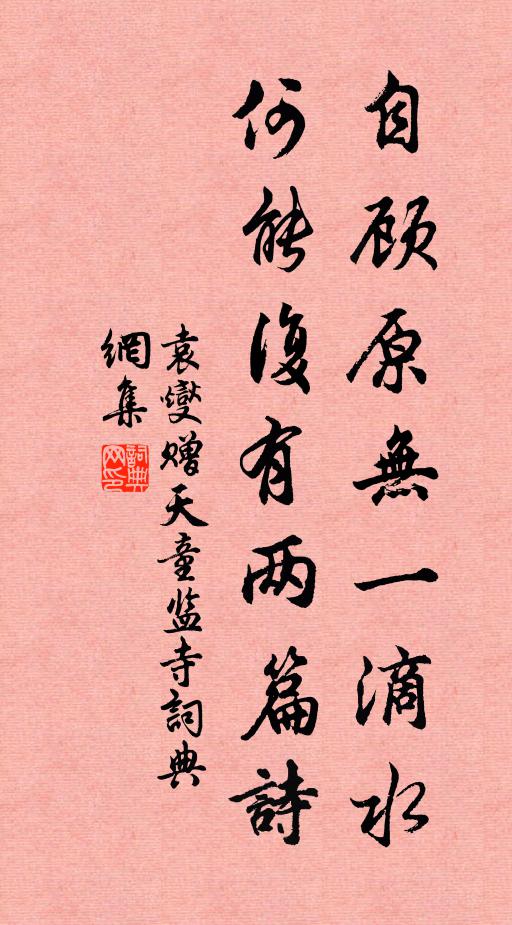 自顾原無一滴水
何能復有两篇詩
袁燮赠天童监寺詞典
網集
詞典
网印